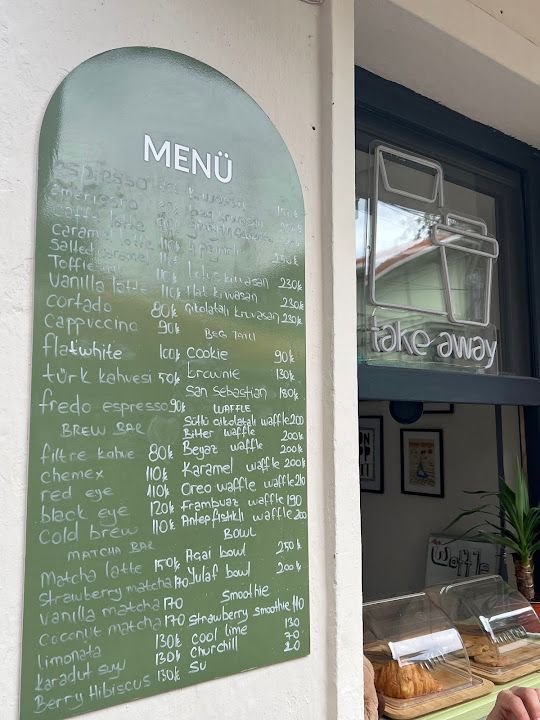 MENÜ
espresso
americano
caffe latte
caramel latte 110₺
salted caramel 110₺
Toffie
Vanilla latte 110₺
cortado 80₺
cappuccino 90₺
flat white 100₺
türk kahvesi 50₺
fredo espresso 90₺
BREW BAR
filtre kahve 80₺
chemex 110₺
red eye 110₺
black eye 120₺
Cold brew 110₺
MATCHA BAR
Matcha latte 150₺
Strawberry matcha 170
Vanilla matcha 170
Coconut matcha 170
limonata 130₺
Karadut suyu 130₺
Berry Hibiscus 130₺
kruvasan 230₺
kruvasan 230₺
Çikolatalı kruvasan 230₺
COOKIE 90₺
brownie 130₺
San Sebastian 180₺
WAFFLE
Sütlü çikolatalı waffle 200
Bitter waffle 200₺
Beyaz waffle 200₺
Karamel waffle 200₺
Oreo waffle waffle 210
Frambuaz waffle 190
Antepfıstıklı waffle 200
BOWL
Açai bowl 250₺
Yulaf bowl 200₺
Smoothie
Strawberry smoothie 110
cool lime 130
Churchill 70
Su 20
take away
Waffle